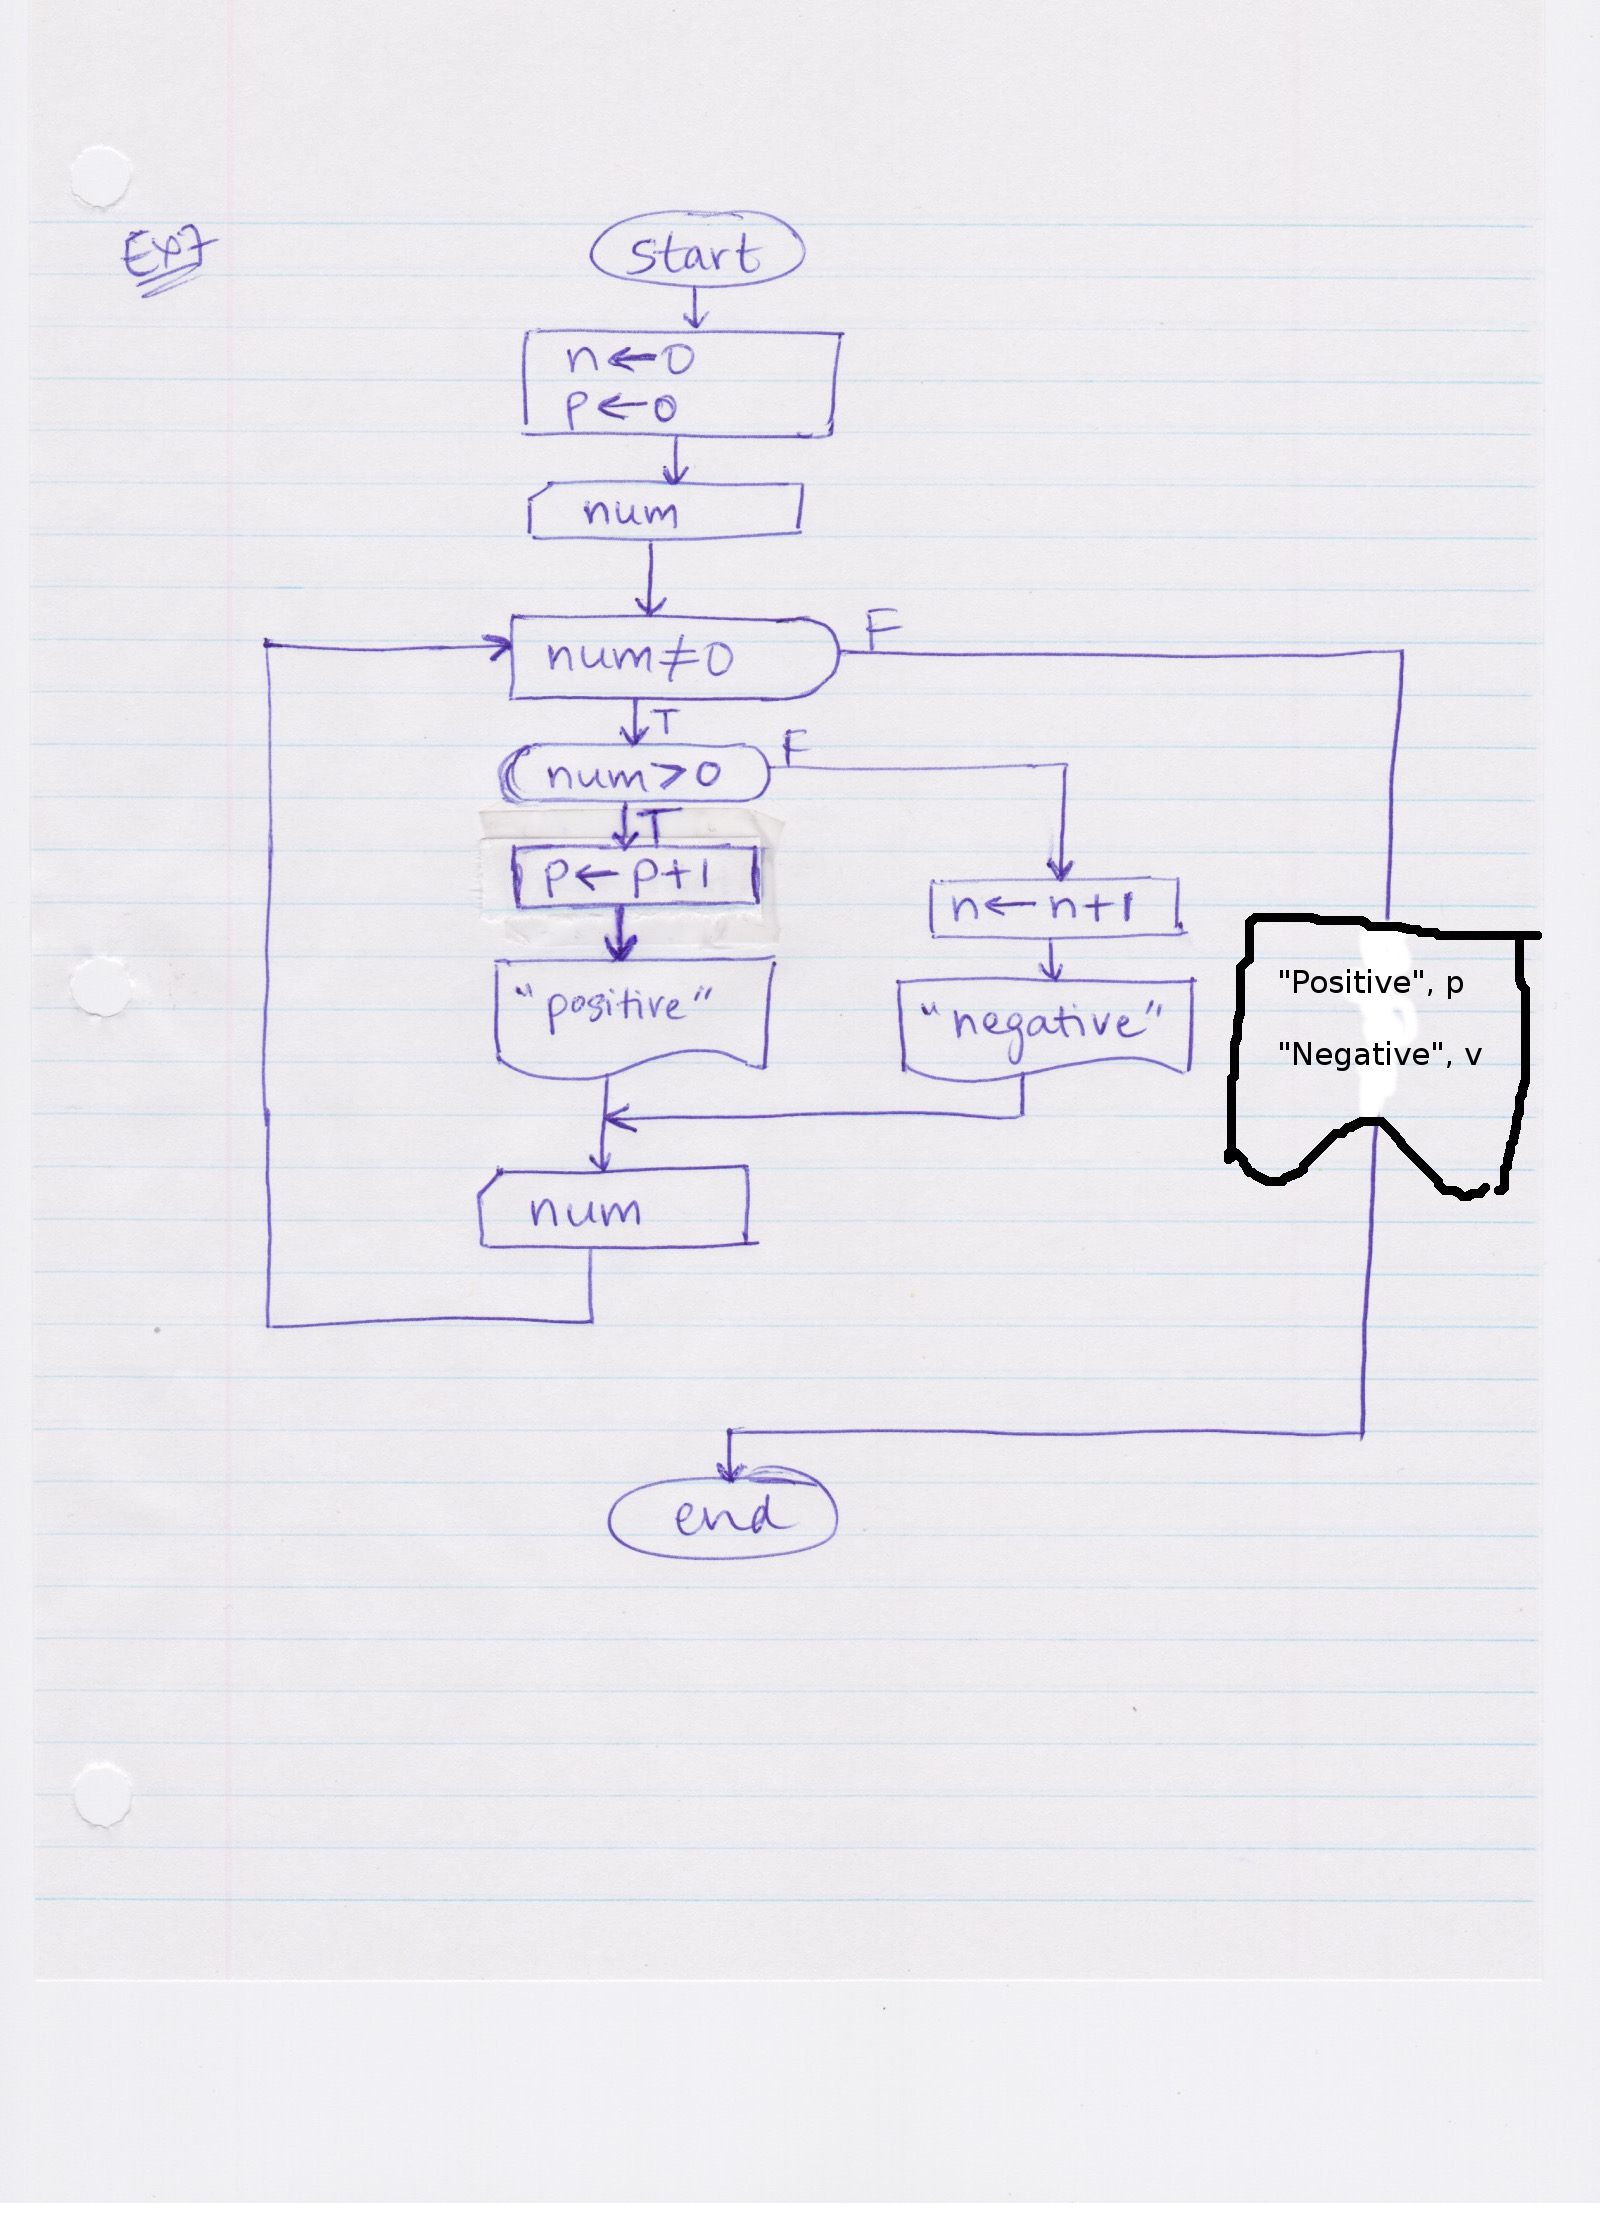 Ex7
start
n ← 0
p ← 0
num
num ≠ 0
F
T
num > 0
F
T
p ← p + 1
n ← n + 1
"positive"
"negative"
"Positive", p
"Negative", v
num
end